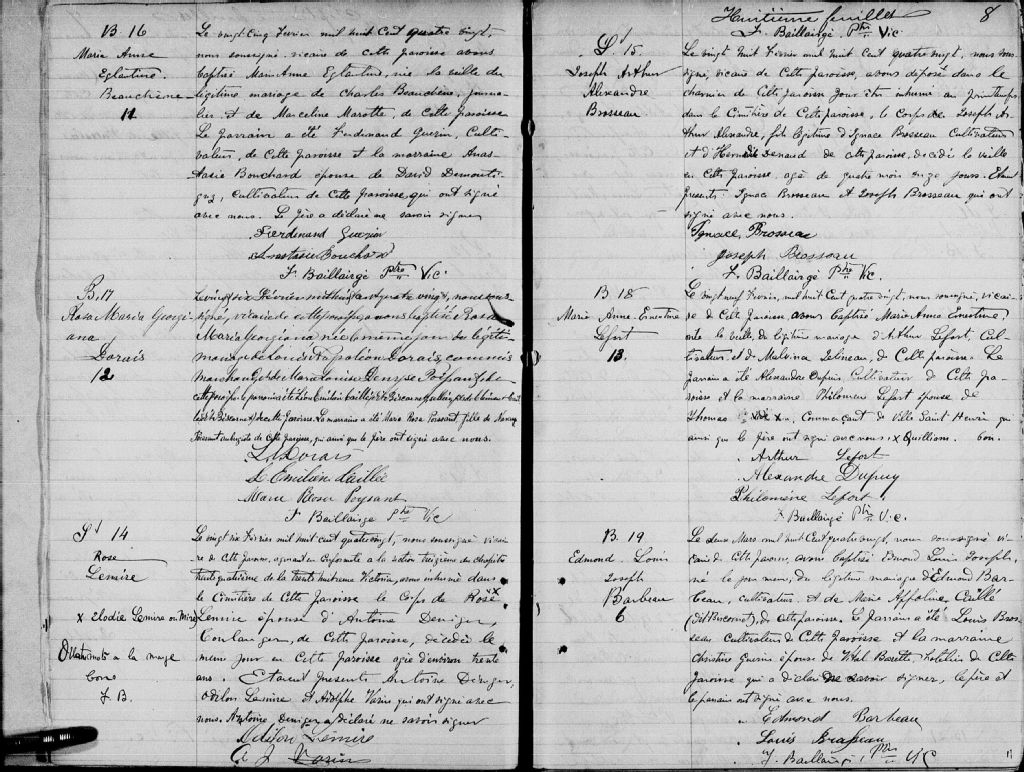 B. 16
Marie Anne
Eglantine
Beauchène
11
Le vingt cinq Février mil huit cent quatre vingt,
nous soussigné vicaire de cette paroisse avons
baptisé Marie Anne Eglantine, née la veille du
légitime mariage de Charles Beauchène, journa-
lier et de Marceline Marotte, de cette paroisse
Le parrain a été Ferdinand Guerin, Culti-
vateur, de Cette paroisse et la marraine Anas-
tasie Bouchard épouse de David
cultivateur de Cette paroisse, qui ont signé
avec nous. Le père a déclaré ne savoir signer
Ferdinand Guerin
Anastasie Bouchard
F. Baillairgé Ptre Vic.
B. 17
Rosa Maria Georgi-
ana
Dorais
12
Le vingt six Février mil huit cent quatre vingt, nous sous-
signé, vicaire de cette paroisse avons baptisé Rosa
Maria Georgiana née le même jour du légiti-
me mariage de Louis Dorais, commis
marchand et de Marie Louise
cette paroisse le parrain a été Léon Emilien Caillié
de cette paroisse. La marraine a été Marie Rosa Poissant, fille de
Poissant aubergiste de cette paroisse, qui ainsi que le père ont signé avec nous.
L. N. Dorais
L. Emilien Caillée
Marie Rosa Poyssant
F. Baillairgé Ptre Vic
S. 14
Rose
Lemire
x Elodie Lemire ou Miré
Quatre mots a la marge
bons
F. B.
Le vingt six Février mil huit cent quatre vingt, nous soussigné vicai-
re de Cette paroisse, agissant en conformité a la section treizième du chapitre
trente quatrième de la trente huitième Victoria, avons inhumé dans
le Cimetière de Cette paroisse le corps de Rose x
Lemire épouse d'Antoine Deniger,
Boulanger, de Cette paroisse, décédée le
même jour en Cette paroisse agée d'environ trente
ans. Etaient presents Antoine Deniger,
Odilon Lemire et Adolphe Varin qui ont signé avec
nous. Antoine Deniger a déclaré ne savoir signer
Odilon Lemire
A J Varin
Huitième feuillet 8
F. Baillairgé Ptre Vic
S. 15
Joseph Arthur
Alexandre
Brosseau
Le vingt huit Février mil huit cent quatre vingt, nous sous
signé, vicaire de Cette paroisse, avons déposé dans le
charnier de Cette paroisse pour être inhumé au printemps
dans le Cimetière de Cette paroisse, le Corps de Joseph Ar-
thur Alexandre, fils légitime d'Ignace Brosseau Cultivateur
et d'Hermine Denaud de cette paroisse, décédé la veille
en Cette paroisse agé de quatre mois onze jours. Etaient
presents Ignace Brosseau et Joseph Brosseau qui ont
signé avec nous.
Ignace Brosseau
Joseph Brosseau
F. Baillairgé Ptre Vic.
B 18
Marie Anne Ernestine
Lefort
13.
Le vingt neuf Février, mil huit Cent quatre vingt, nous soussigné, vicai-
re de Cette paroisse avons baptisé Marie Anne Ernestine,
née la veille, du légitime mariage d'Arthur Lefort, Cul-
tivateur, et de Malvina Gelineau, de Cette paroisse. Le
parrain a été Alexandre Dupuis, Cultivateur de Cette pa-
roisse et la marraine Philomene Lefort épouse de
Thomas x, Commerçant de Ville Saint Henri qui
ainsi que le père ont signé avec nous. x Quilliam. bon.
Arthur Lefort
Alexandre Dupuy
Philomène Lefort
F. Baillairgé Ptre Vic.
B. 19
Edmond Louis
Joseph
Barbeau
6
Le deux Mars mil huit Cent quatre vingt, nous soussigné vi-
caire de Cette paroisse, avons baptisé Edmond Louis Joseph,
né le jour même, du légitime mariage d'Edmond Bar-
beau, cultivateur, et de Marie Appoline Caillé
(dit Biscornet), de Cette paroisse. Le parrain a été Louis Bros-
seau cultivateur de Cette paroisse et la marraine
Christine Guerin épouse de Vital Barette, hotelier de Cette
paroisse qui a déclaré ne savoir signer, le père et
le parrain ont signé avec nous.
Edmond Barbeau
Louis Brasseau
F. Baillairgé, Ptre Vic